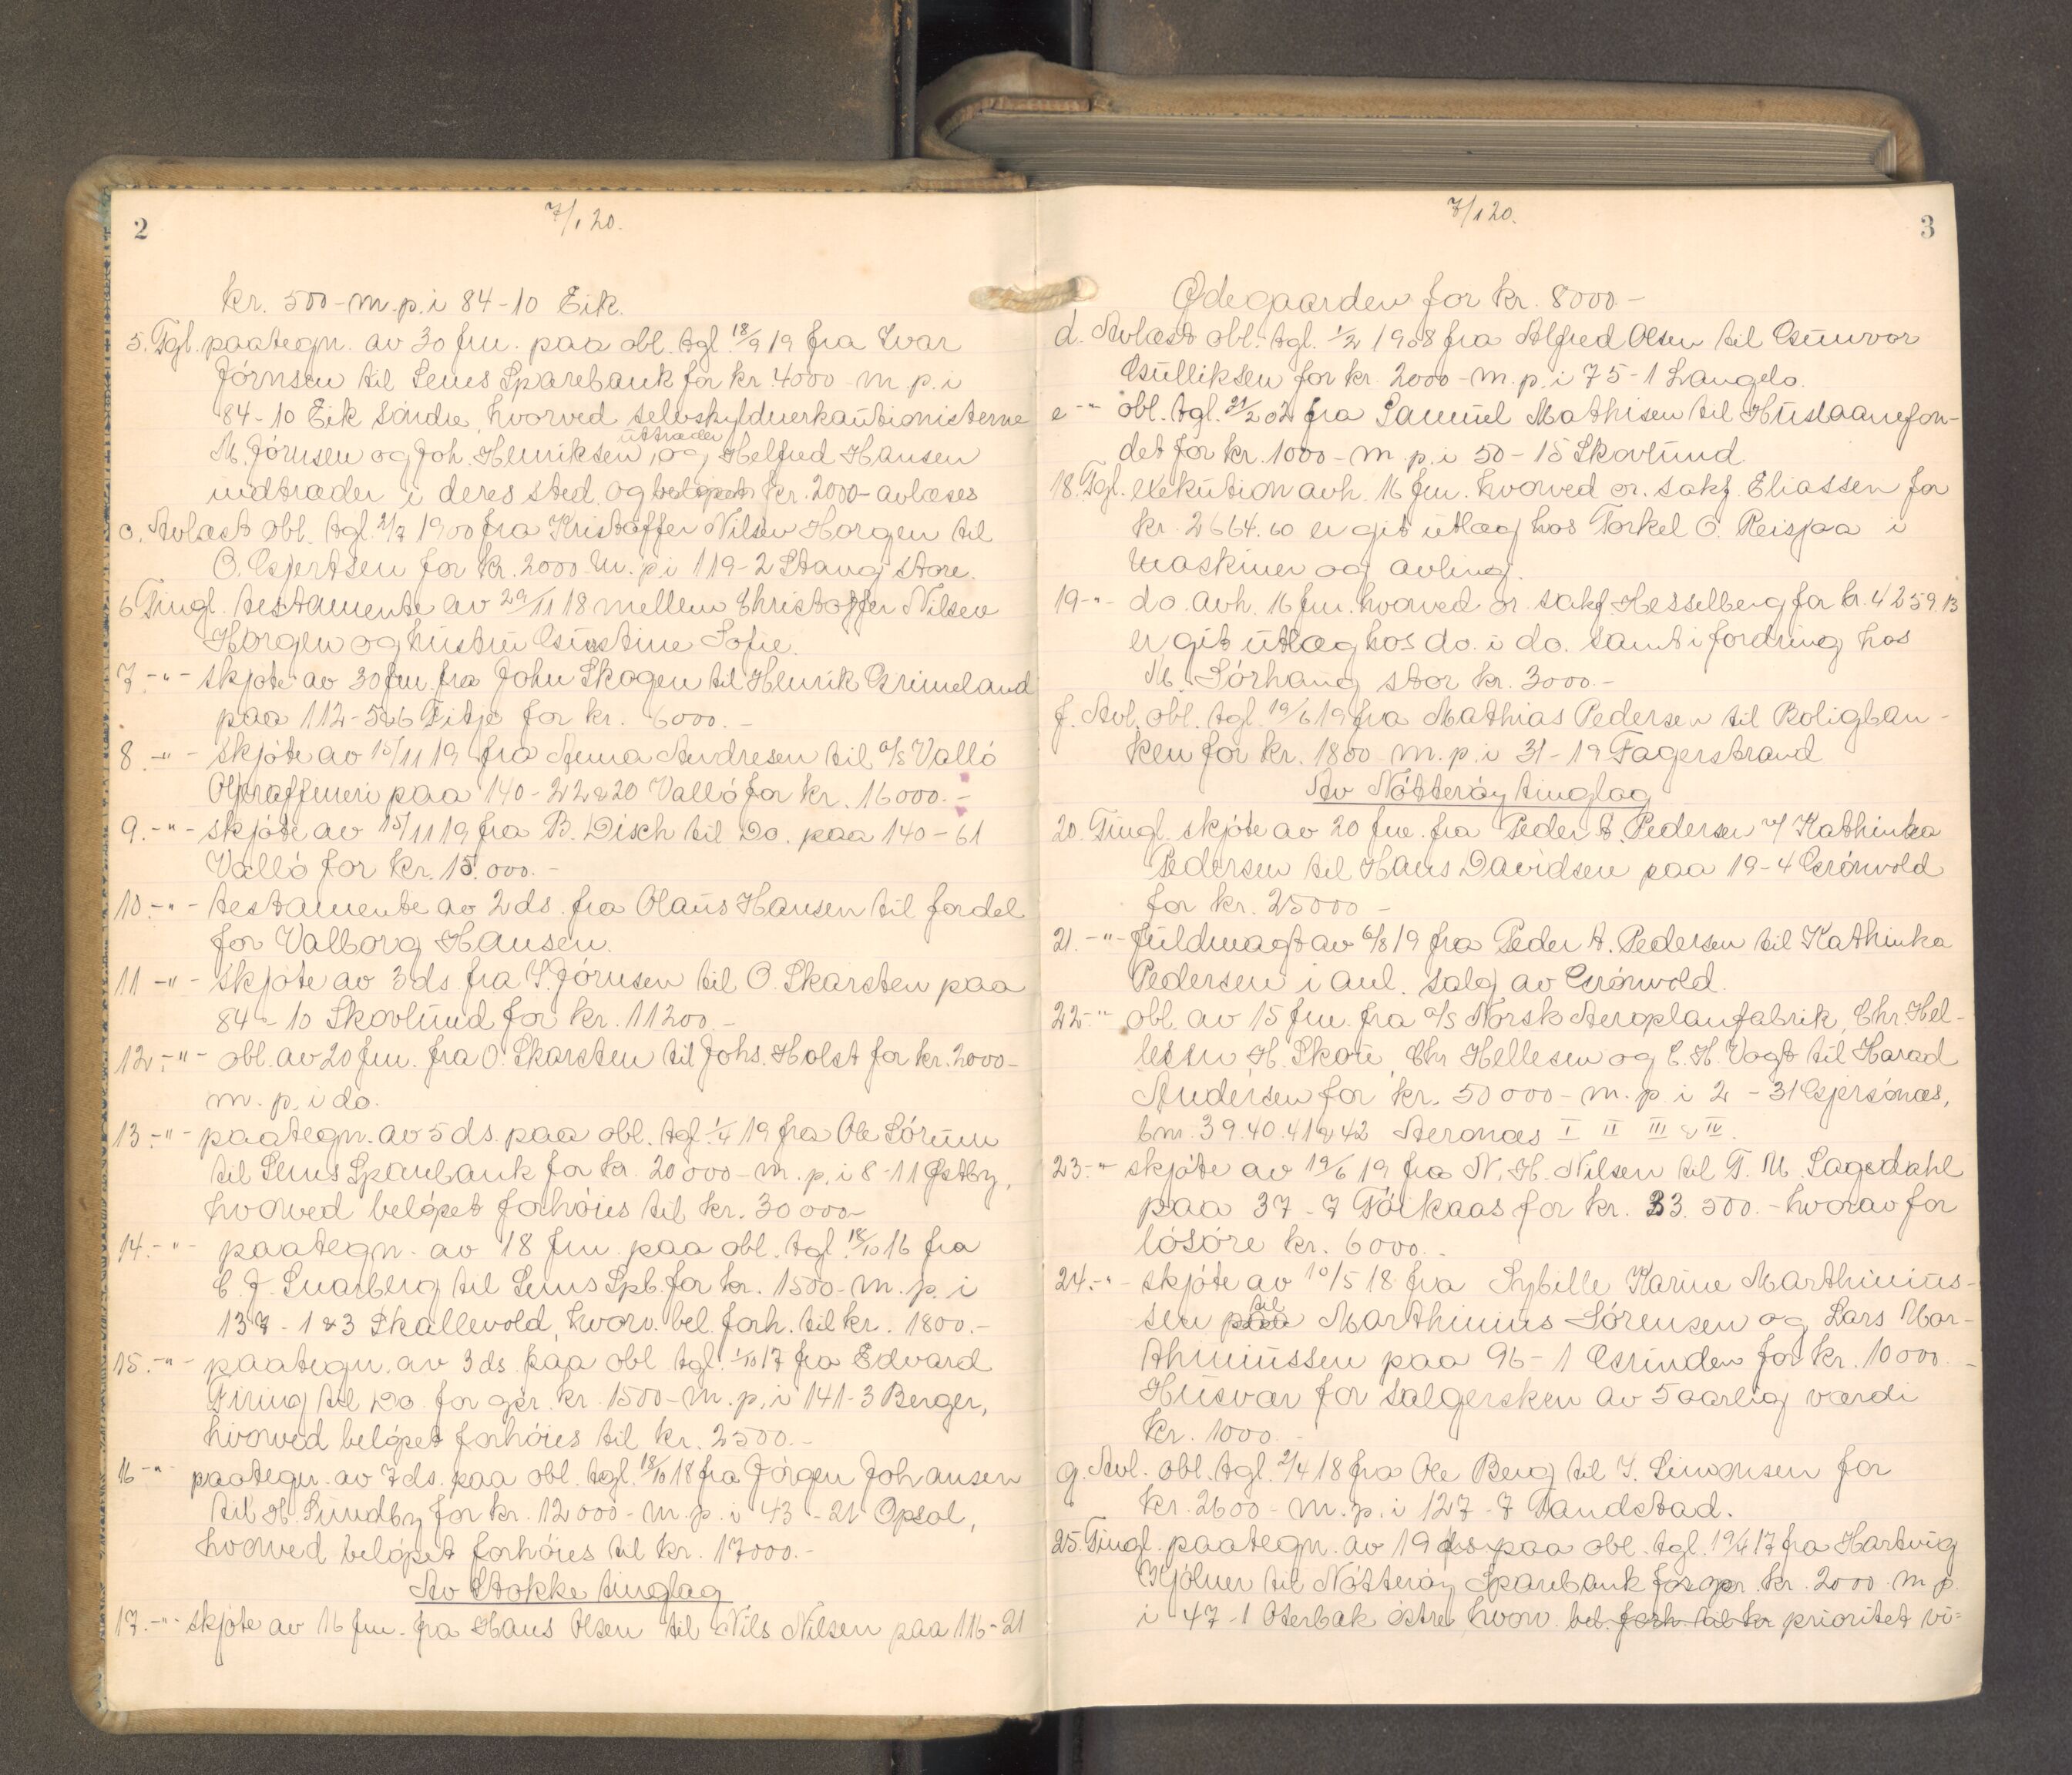 2
7/1 20.
kr. 500 - m. p. i 84-10 Eik.
5. Tgl. paategn. av 30 fm. paa obl. tgl. 18/9 19 fra Ivar
Jörnsen til Sems Sparebank for kr. 4000 - m. p. i
84-10 Eik söndre, hvorved selvskyldnerkautionisterne
uttræder
M. Jörnsen og Joh. Henriksen, og Helfred Hansen
indtræder i deres sted. og beløpet kr. 2000 - avlæses
c. Avlæst obl. tgl. 2/7 1900 fra Kristoffer Nilsen Horgen til
O. Gjertsen for kr. 2000 m. p. i 119-2 Stang store.
6 Tingl. testamente av 29/11 18 mellem Christoffer Nilsen
Horgen og hustru Gustine Sofie.
7 -"- skjöte av 30 fm. fra John Skogen til Henrik Grimeland
paa 112-5&6 Fitje for kr. 6000.-
8 -"- skjöte av 15/11 19 fra Anna Andresen til A/S Vallö
Oljeraffineri paa 140-22&20 Vallö for kr. 16000.-
9. -"- skjöte av 15/11 19 fra B. Disch til Do. paa 140-61
Vallö for kr. 15.000.-
10. -"- testamente av 2 ds. fra Olaus Hansen til fordel
for Valborg Hansen.
11 -"- skjöte av 3 ds. fra I. Jörnsen til O. Skarsten paa
84-10 Skovlund for kr. 11200.-
12. -"- obl. av 20 fm. fra O. Skarsten til Johs. Holst for kr. 2000-
m. p. i do.
13. -"- paategn. av 5 ds. paa obl. tgl. 1/4 19 fra Ole Sörum
til Sems Sparebank for kr. 20000 - m. p. i 8-11 Østby,
hvorved belöpet forhöies til kr. 30000-
14. -"- paategn. av 18 fm. paa obl. tgl. 18/10 16 fra
C. J. Snarberg til Sems Spb. for kr. 1500 - m. p. i
137-1&3 Skallevold, hvorv. bel. forh. til kr. 1800.-
15. -"- paategn. av 3 ds. paa obl. tgl. 1/10 17 fra Edvard
Firing til Do. for opr. kr. 1500 - m. p. i 141-3 Berger,
hvorved belöpet forhöies til kr. 2500.-
16 -"- paategn. av 7 ds. paa obl. tgl. 18/10 18 fra Jörgen Johansen
til H. Sundby for kr. 12000 - m. p. i 43-21 Opsal,
hvorved belöpet forhöies til kr. 17000.-
Av Stokke tinglag
17. -"- skjöte av 16 fm. fra Hans Olsen til Nils Nilsen paa 116-21
3
7/1 20.
Ødegaarden for kr. 8000-
d. Avlæst obl. tgl. 1/2 1908 fra Alfred Olsen til Gunvor
Gulliksen for kr. 2000 - m. p. i 75-1 Langelo.
e -"- obl. tgl. 21/2 02 fra Samuel Mathisen til Huslaanefon-
det for kr. 1000 - m. p. i 50-15 Skovlund
18. Tgl. exekution avh. 16 fm. hvorved or. sakf. Eliassen for
kr. 2664.60 er git utlæg hos Torkel O. Reisjaa i
maskiner og avling.
19 -"- do. avh. 16 fm. hvorved or. sakf. Hesselberg for kr. 4259.13
er git utlæg hos do. i do. samt i fordring hos
M. Sörhaug stor kr. 3000.-
f. Avl. obl. tgl. 19/6 19 fra Mathias Pedersen til Boligban-
ken for kr. 1800 m. p. i 31-19 Fagerstrand
Av Nötteröy tinglag
20. Tingl. skjöte av 20 fm. fra Peder A. Pedersen v/ Kathinka
Pedersen til Hans Davidsen paa 19-4 Grönvold
for kr. 25000-
21. -"- fuldmagt av 6/8 19 fra Peder A. Pedersen til Kathinka
Pedersen i anl. salg av Grönvold.
22. -"- obl. av 15 fm. fra A/S Norsk Aeroplanfabrik, Chr. Hel-
lesen, H. Skate, Chr Hellesen og C. H. Vogt til Harad
Andersen for kr. 50000 - m. p. i 2-31 Gjersönæs,
bnr. 39. 40. 41 & 42 Aeronæs I II III & IV.
23. -"- skjöte av 19/6 19 fra N. H. Nilsen til T. M. Lagsdahl
paa 37-7 Töikaas for kr. 33.500.- hvorav for
lösöre kr. 6000.-
24. -"- skjöte av 10/5 18 fra Sybille Karine Marthinius-
til
sen paa Marthinius Sörensen og Lars Mar-
thiniussen paa 96-1 Grinden for kr. 10000.-
Husvær for sælgersken av 5 aarlig værdi
kr. 1000.-
g. Avl. obl. tgl. 2/4 18 fra Ole Berg til I. Simonsen for
kr. 2600 - m. p. i 127-7 Tandstad.
25. Tingl. paategn. av 19 ds. paa obl. tgl. 19/4 17 fra Hartvig
Kjölner til Nötteröy Sparebank for opr. kr. 2000 m. p.
i 47-1 Oterbæk östre, hvorv. bel. forh. til kr prioritet vi=